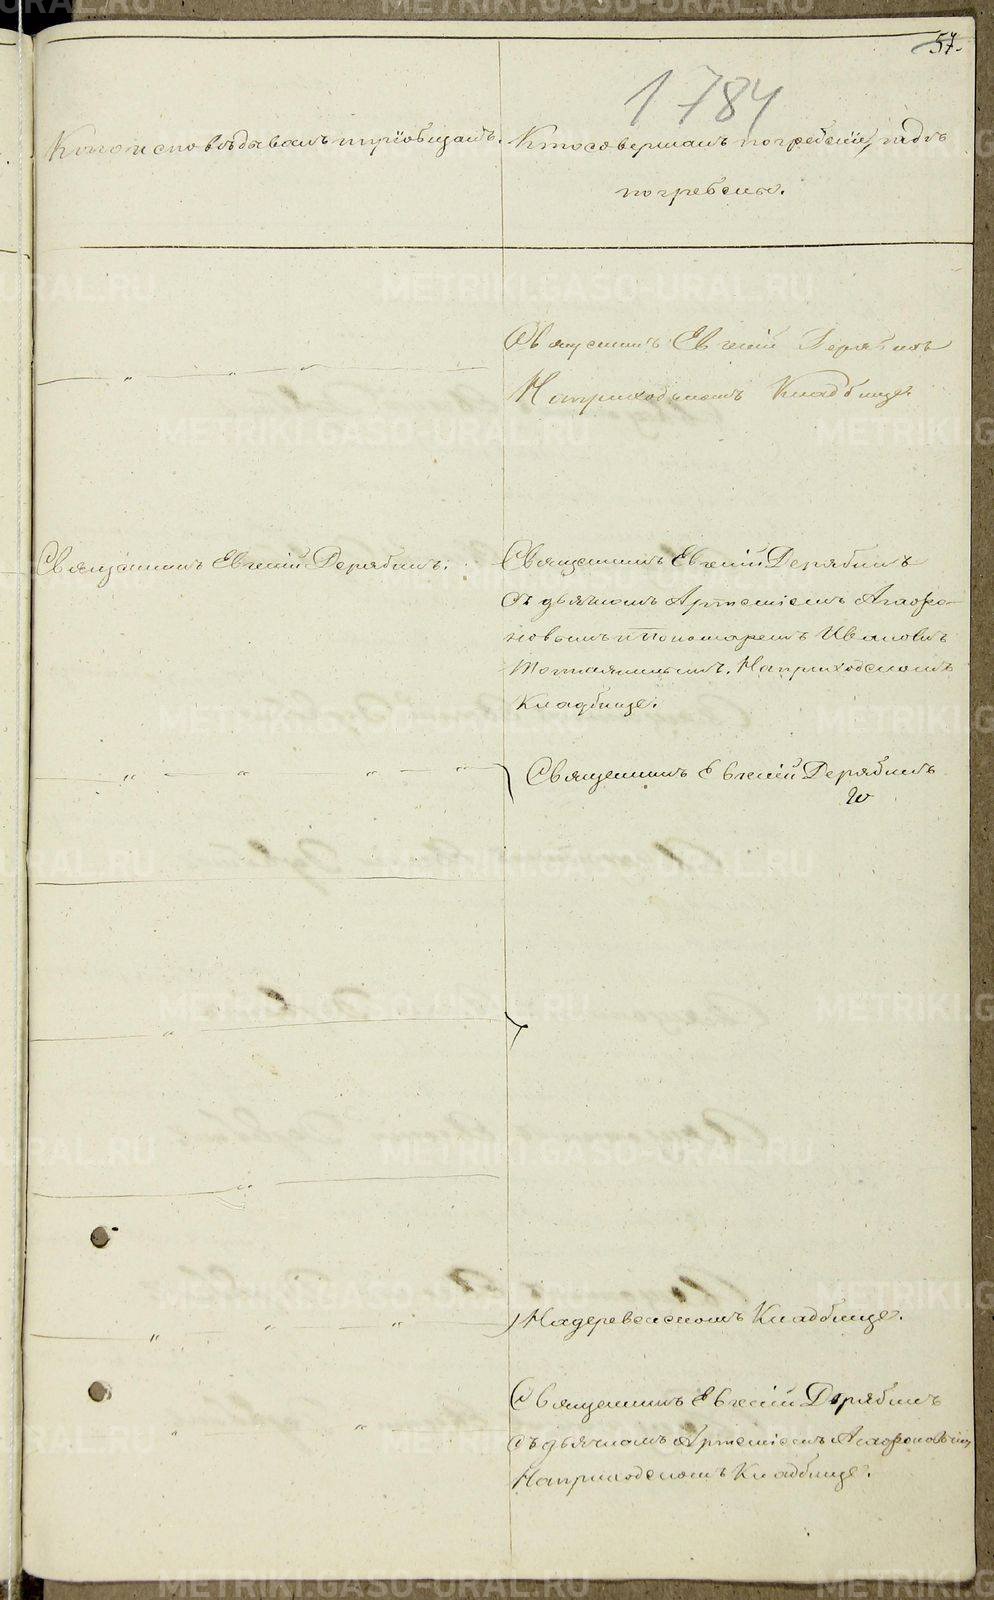 57.
1784
Кто исповѣдывалъ и пріобщалъ.
Кто совершалъ погребеніе, и гдѣ
погребены.
Священникъ Евгеній Дерябинъ
На приходскомъ Кладбище.
Священникъ Евгеній Дерябинъ.
Священникъ Евгеній Дерябинъ
съ дьячкомъ Артеміемъ Агафо-
новымъ и Пономаремъ Иваномъ
На приходскомъ
Кладбище.
Священникъ Евгеній Дерябинъ
На деревенскомъ Кладбище.
Священникъ Евгеній Дерябинъ
съ дьячкомъ Артеміемъ Агафоновымъ
На приходскомъ Кладбище.
METRIKI.GASO-URAL.RU